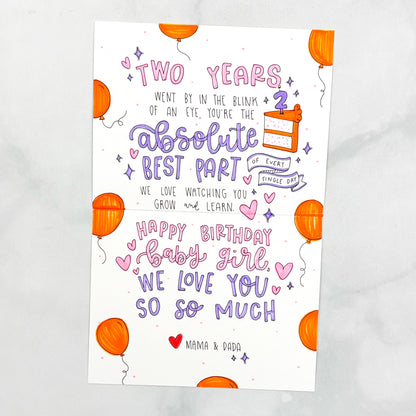 TWO YEARS,
2
WENT BY IN THE BLINK
OF AN EYE, YOU'RE THE
absolute
BEST PART
OF EVERY
SINGLE DAY
WE LOVE WATCHING YOU
GROW and LEARN.
HAPPY BIRTHDAY
baby girl,
WE LOVE YOU
SO SO MUCH
MAMA & DADA